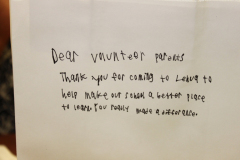 Dear volunteer parents
Thank you for coming to Leawa to
help make our school a better place
to learn. You really made a difference.